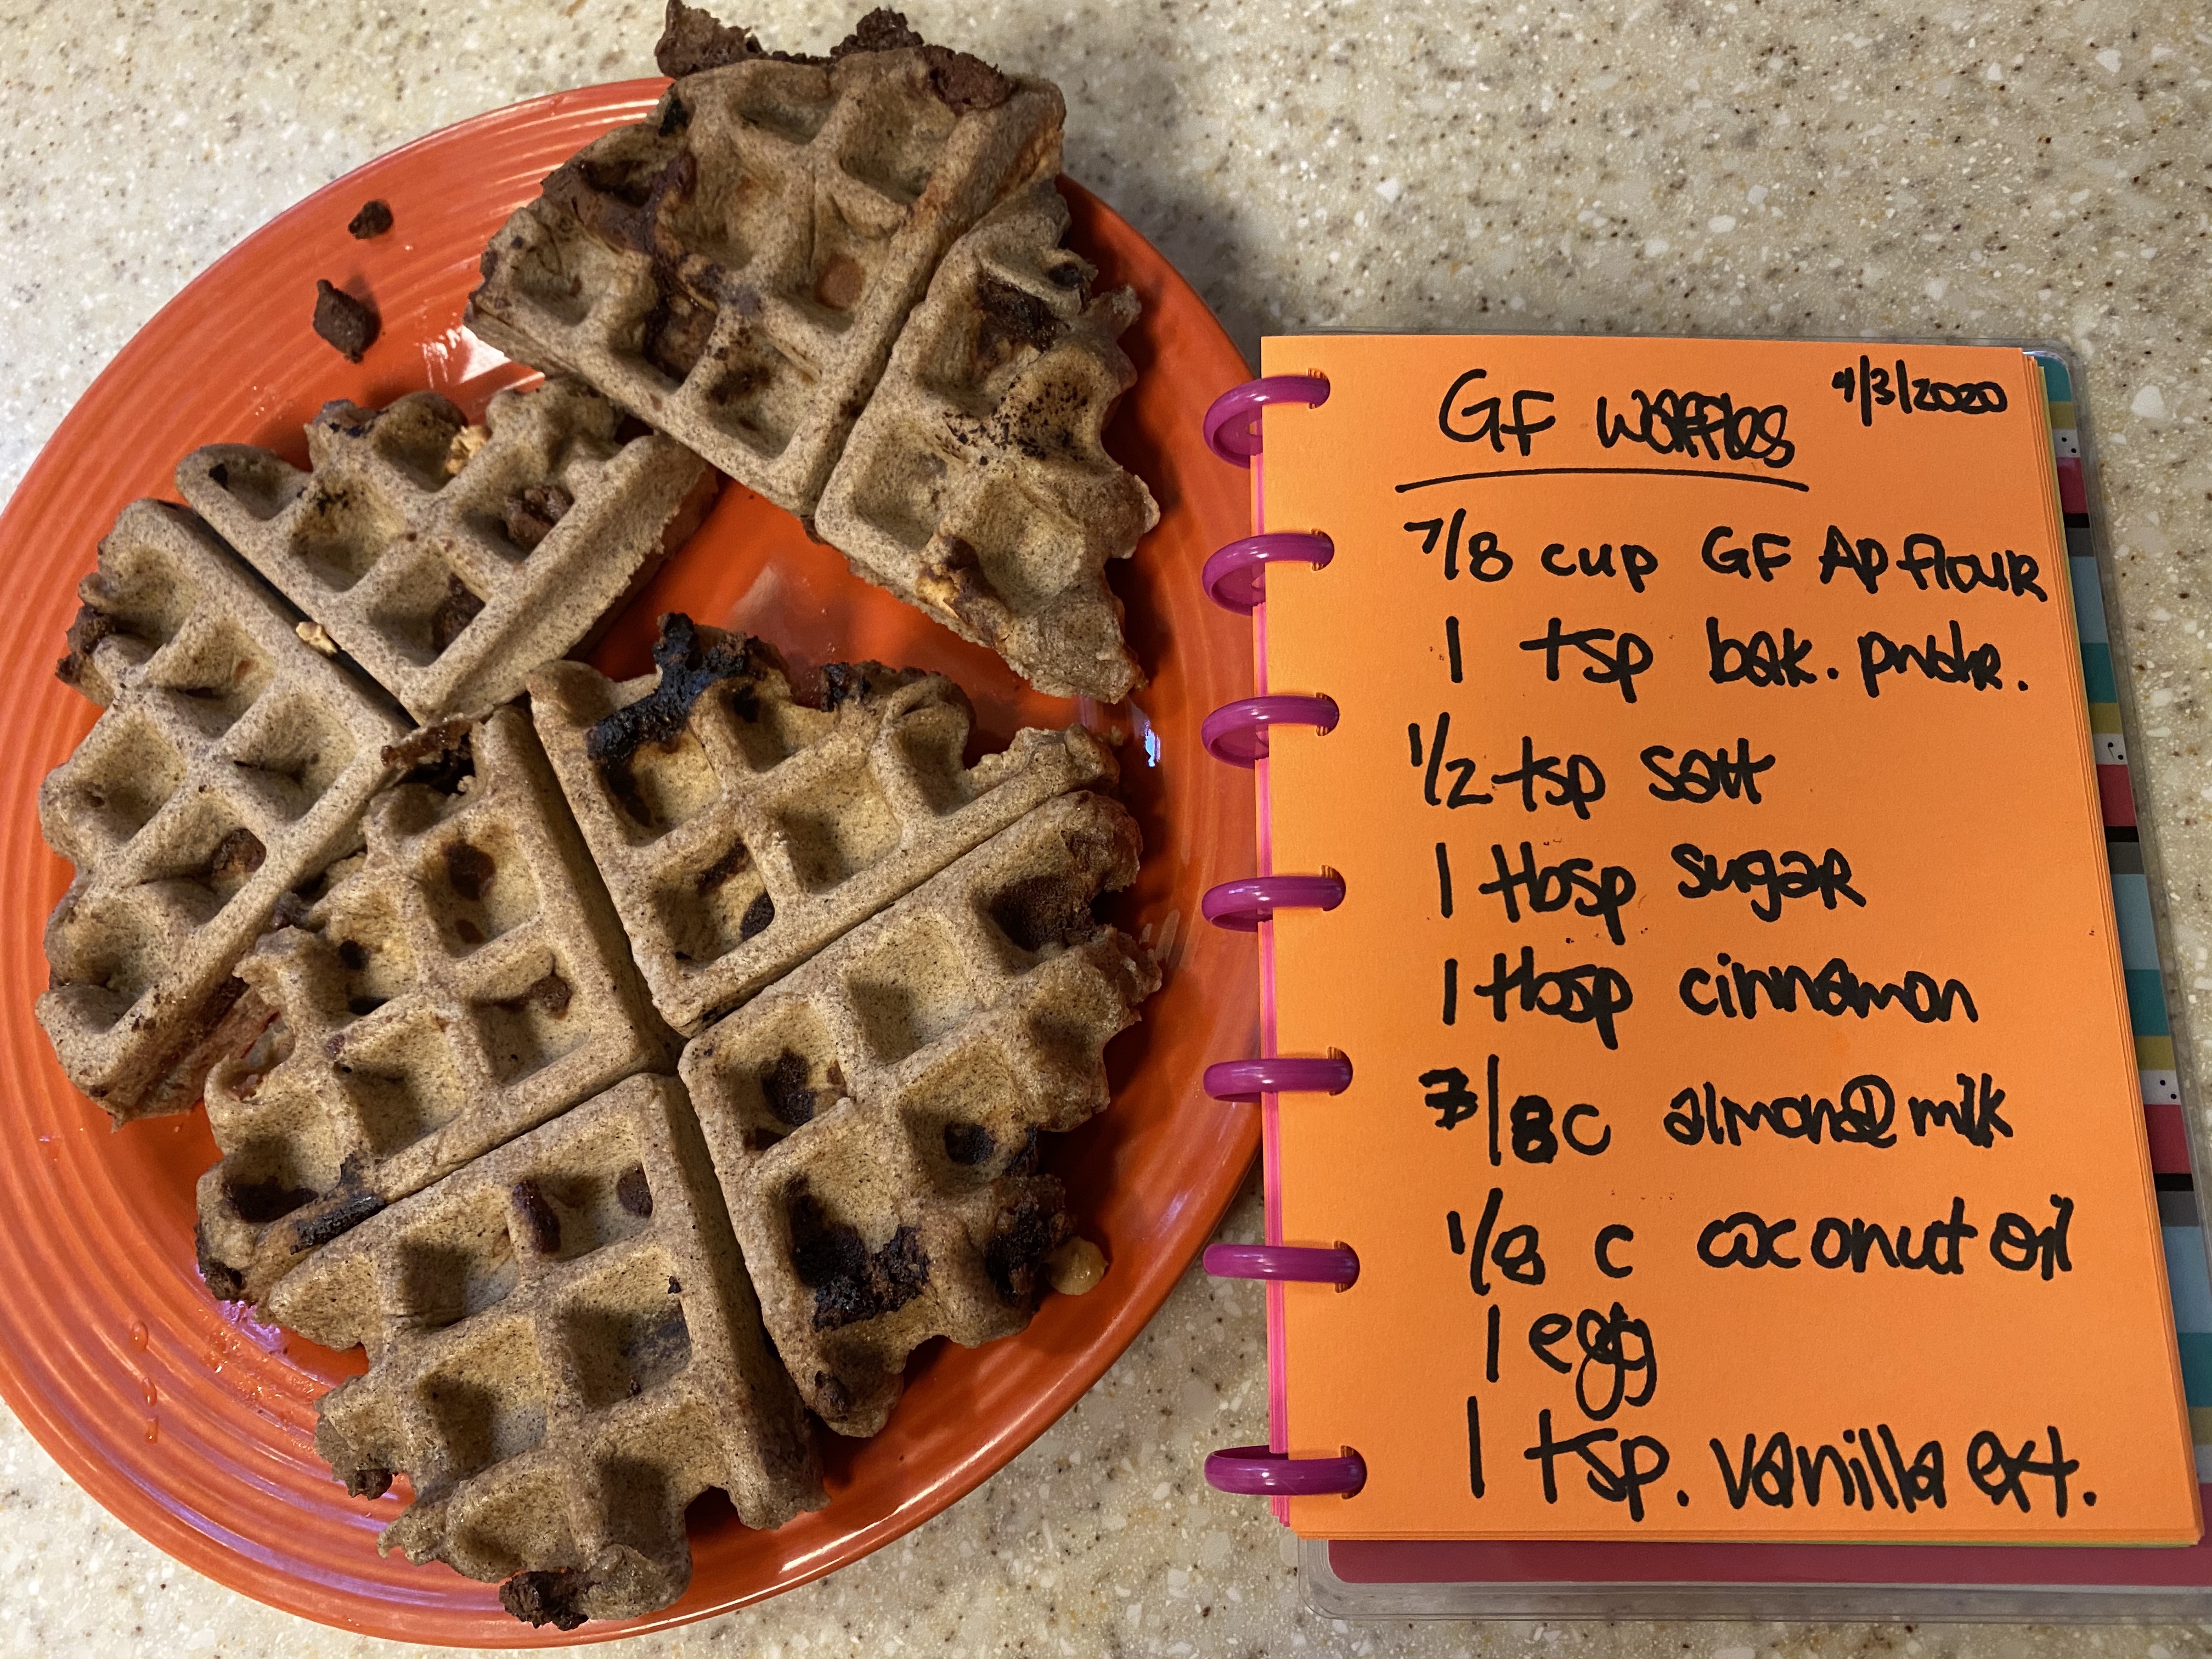 GF Waffles 4/3/2020
7/8 cup GF AP flour
1 tsp bak. pwdr.
1/2 tsp salt
1 Tbsp sugar
1 Tbsp cinnamon
7/8 c almond milk
1/8 c coconut oil
1 egg
1 tsp. vanilla ext.